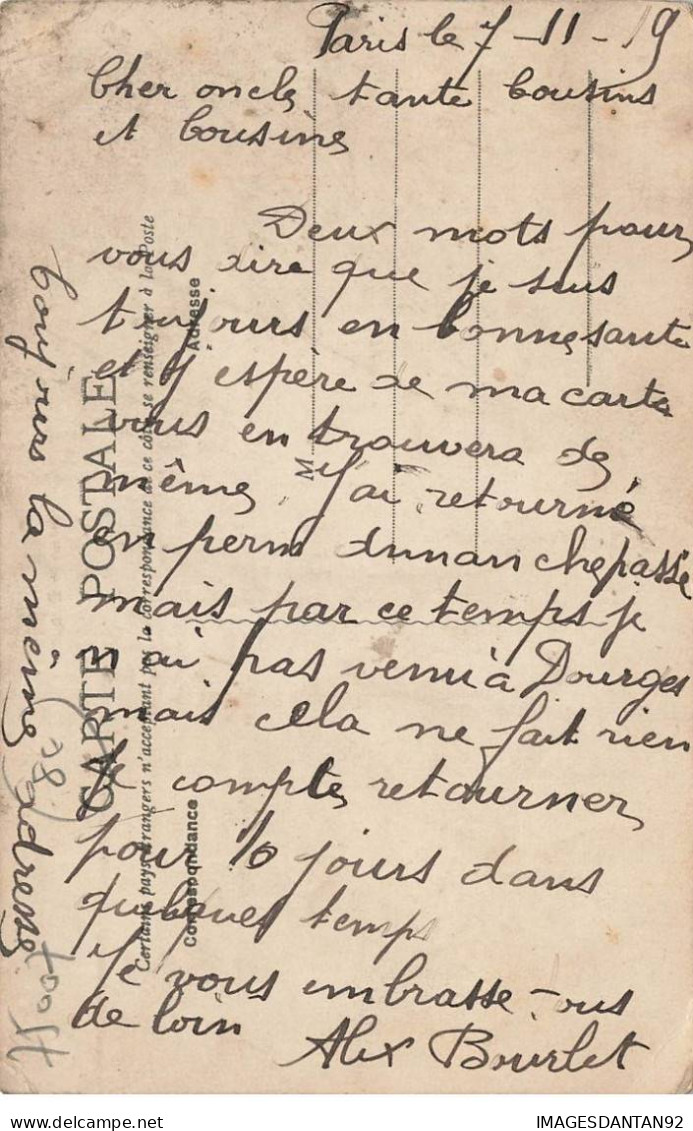 Paris le 7-11-19
Cher oncle tante Cousins
et Cousine
Deux mots pour
vous dire que je suis
toujours en bonne sante
et j espère de ma carte
vous en trouvera de
même J'ai retourné
en perm dimanche passé
mais par ce temps je
n ai pas venu à Dourges
mais cela ne fait rien
Je compte retourner
pour 10 jours dans
quelques temps
Je vous embrasse tous
de loin Alex Bourlet
toujours la même adresse
CARTE POSTALE
Certains pays étrangers n'acceptant pas la correspondance de ce côté se renseigner à la Poste
Correspondance
Adresse
M
IMAGESDANTAN92